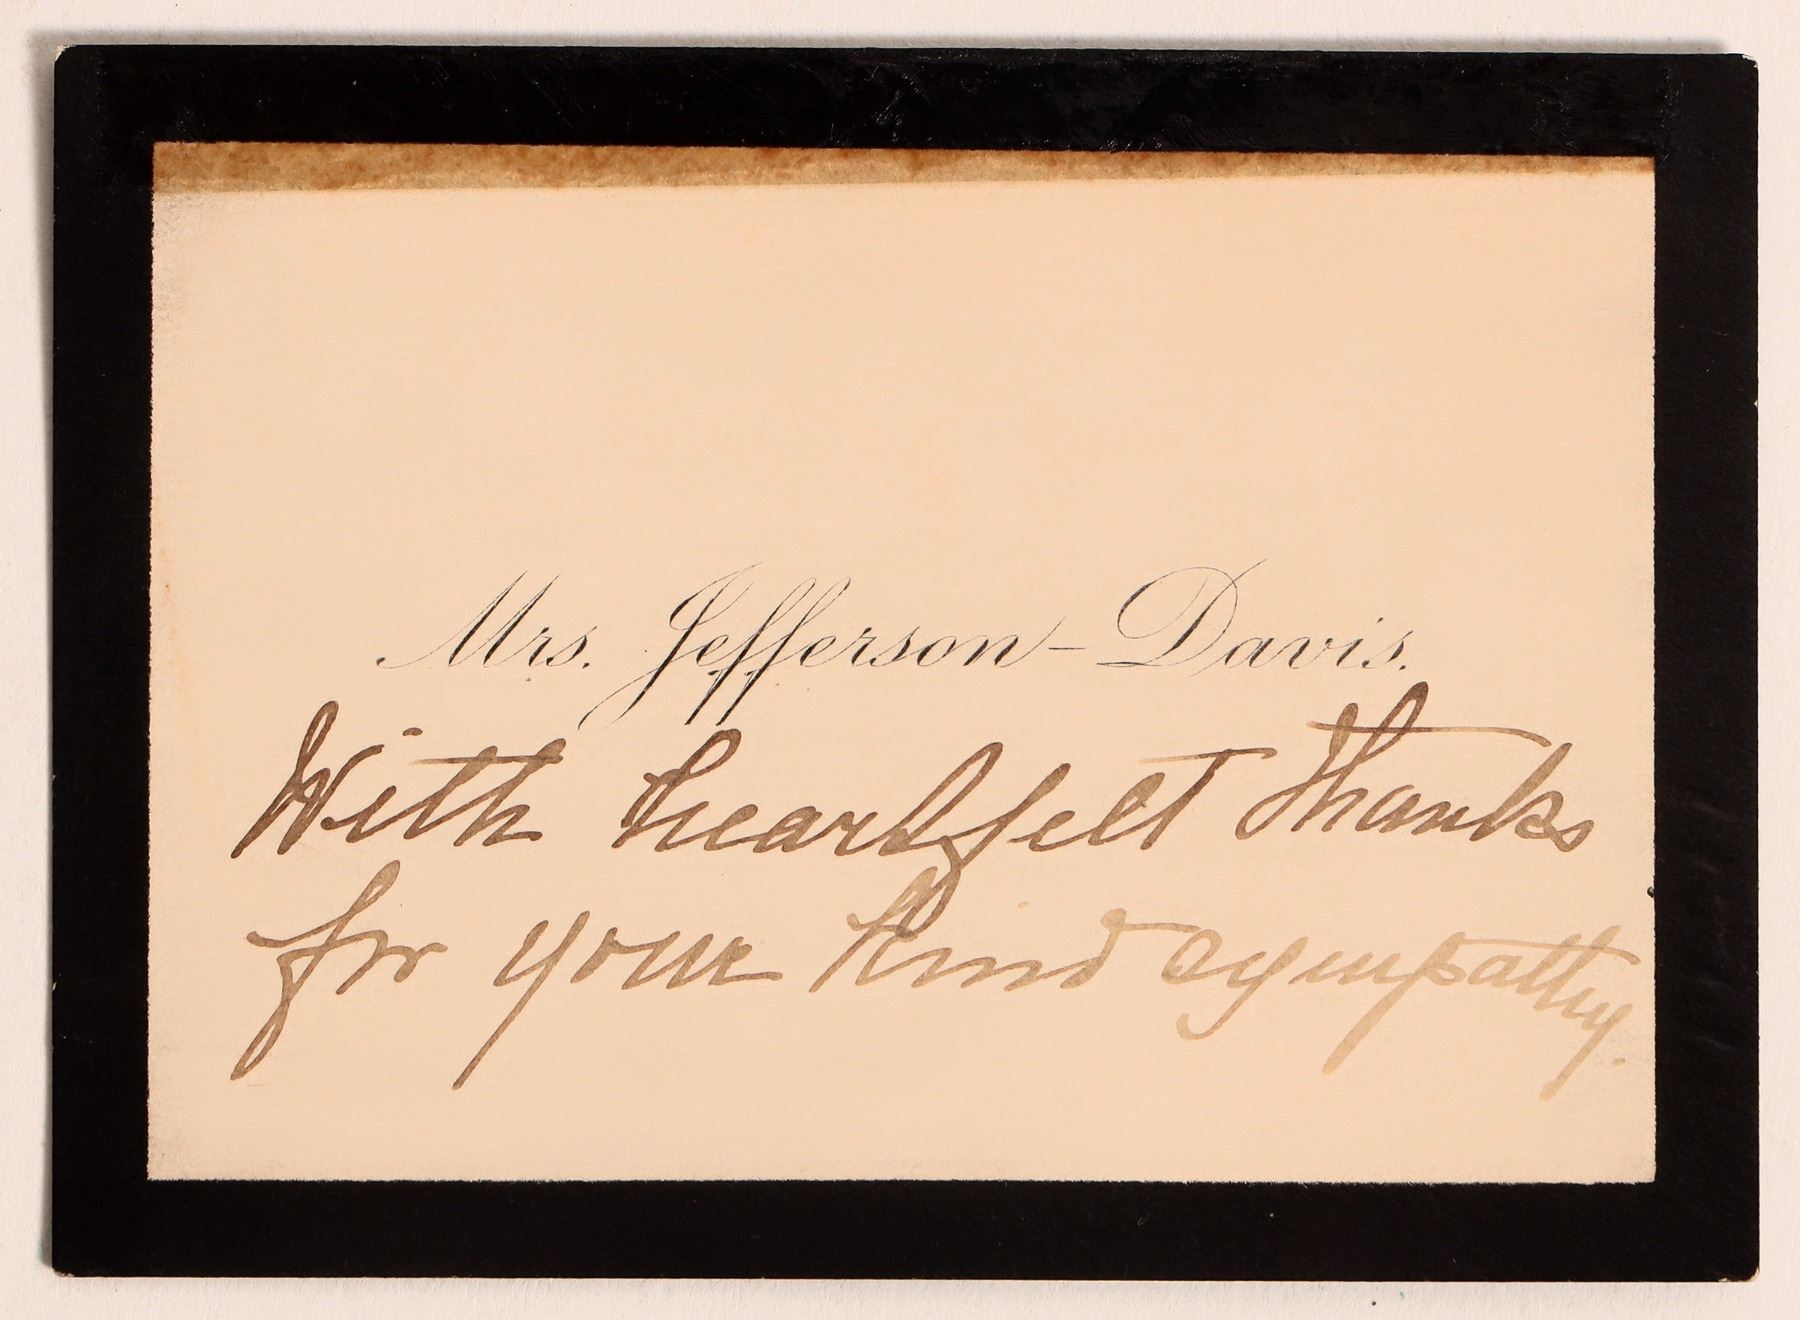 Mrs. Jefferson-Davis.
With heartfelt thanks
for your kind sympathy.